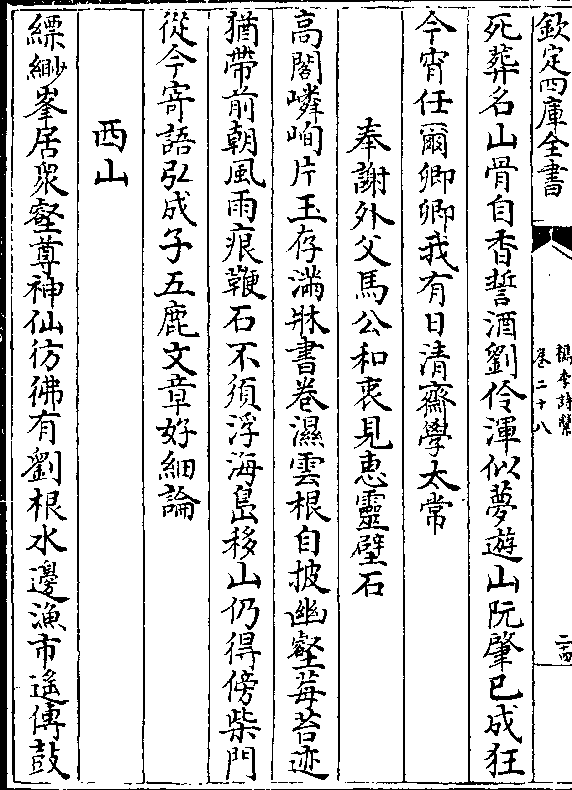 欽定四庫全書
檇李詩繫
卷二十八
二十四
死葬名山骨自香誓酒劉伶渾似夢遊山阮肇已成狂
今宵任爾卿卿我有日清齋學太常
奉謝外父馬公和衷見惠靈壁石
高閣嶙峋片玉存滿牀書卷濕雲根自披幽壑莓苔迹
猶帶前朝風雨痕鞭石不須浮海島移山仍得傍柴門
從今寄語弘成子五鹿文章好細論
西山
縹緲峯居衆壑尊神仙彷彿有劉根水邊漁市遙傳鼓